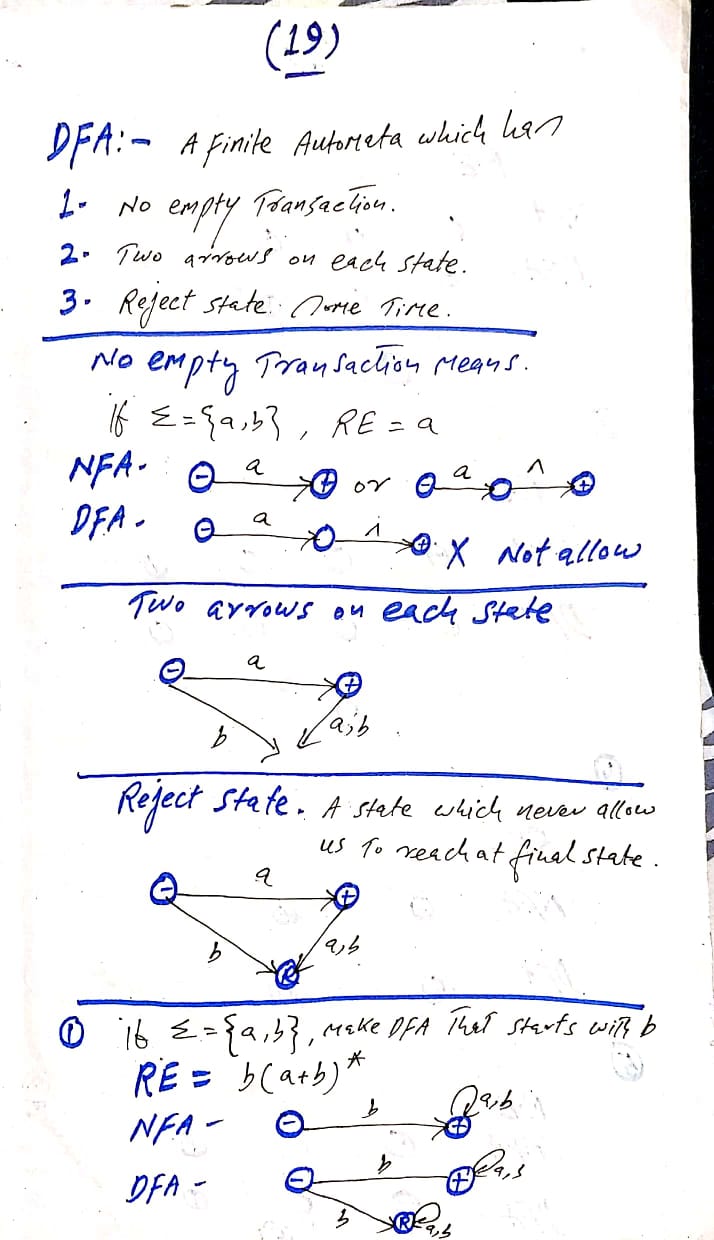 (19)
DFA:- A Finite Automata which has
1- No empty Transaction.
2- Two arrows on each state.
3- Reject state. Some Time.
No empty Transaction Means.
if Σ={a,b}, RE = a
NFA- - a + or - a ^ +
DFA- - a ^ + X Not allow
Two arrows on each state
- a +
b a,b
Reject state. A state which never allow
us To reach at final state.
- a +
b a,b
R
① if Σ={a,b}, Make DFA That starts with b
RE = b(a+b)*
NFA - - b + a,b
DFA - - b + a,b
b R a,b